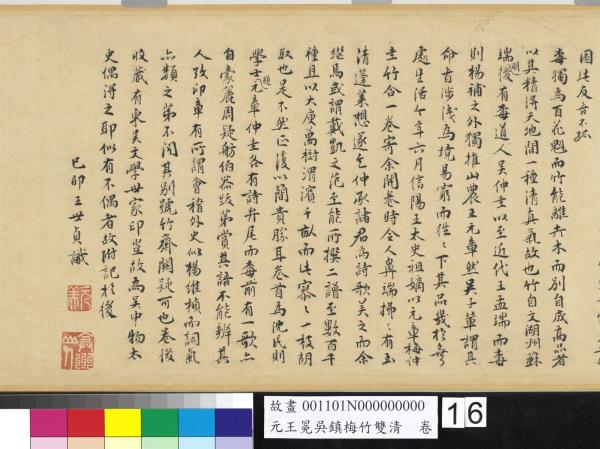 固此反舌不孤
梅獨為百花魁而竹能離卉木而別自成高品者
以其精得天地間一種清真氣故也竹自文湖州蘇
端明後有梅道人吳仲圭以至近代王孟端而梅
則楊補之外獨推山農王元章然吳子輩謂其
命旨涉淺為境易窮而往往下其品幾於無
處生活今年六月信陽王太史祖嫡以元章梅仲
圭竹合一卷寄余開卷時令人鼻端拂拂有玉
清蓬萊想遂乞仲承諸君為詩歌美之而余
繼焉或謂戴凱之范至能所撰二譜至數百千
種且以大庾萬樹渭濱千畝而此寥寥一枝胡
取也是不然正復以簡貴勝耳卷首為沈民則
學士題元章仲圭各有詩弁尾而梅前有一歌亦
自豪麗周疑舫伯器跋第賞其語不能辨其
人攷印章有所謂會稽外史似楊維楨而詞氣
亦類之第不聞其別號竹齋闕疑可也卷後
收藏有東吳文學世家印豈故為吳中物太
史偶得之耶似有不偶者故附記於後
己卯王世貞識
故畫 001101N000000000
元王冕吳鎮梅竹雙清 卷
16